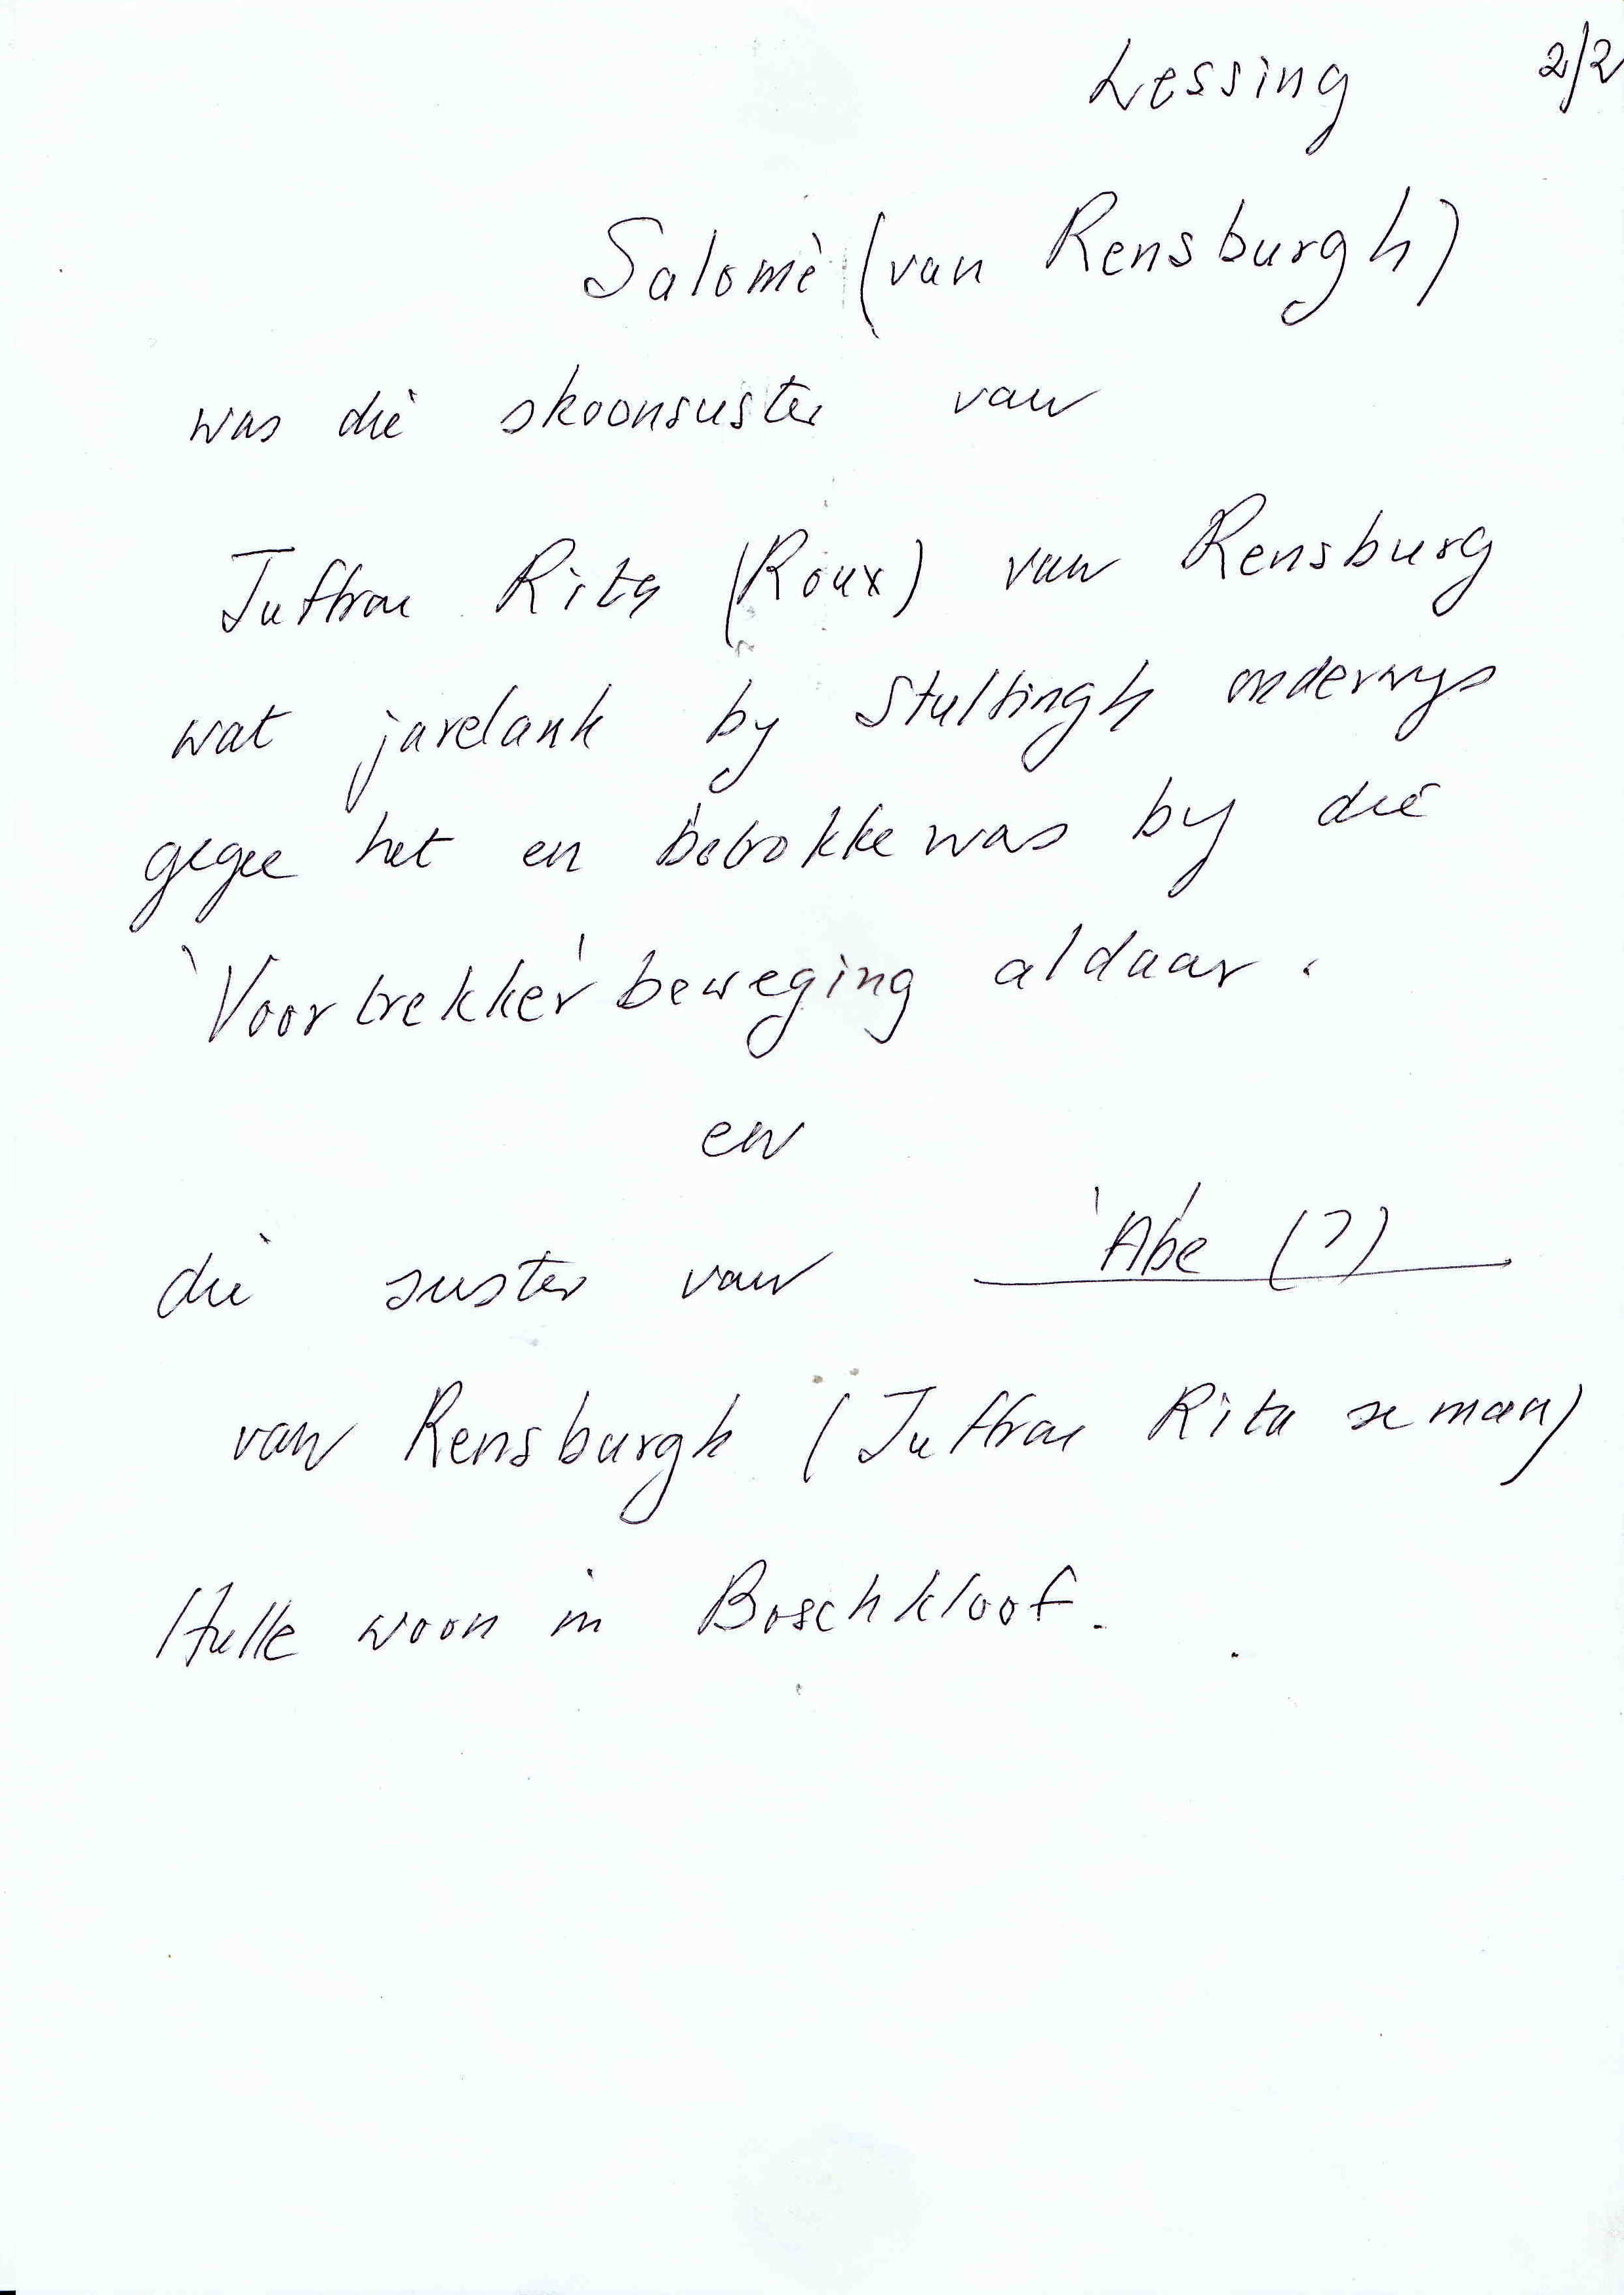 Lessing 2/2
Salomè (van Rensburgh)
was die skoonsuster van
Juffrou Rita (Roux) van Rensburg
wat jarelank by Stultingh onderwys
gegee het en betrokke was by die
'Voortrekker' beweging aldaar.
en
die suster van 'Abe' (?)
van Rensburgh (Juffrou Rita se man)
Hulle woon in Boschkloof.